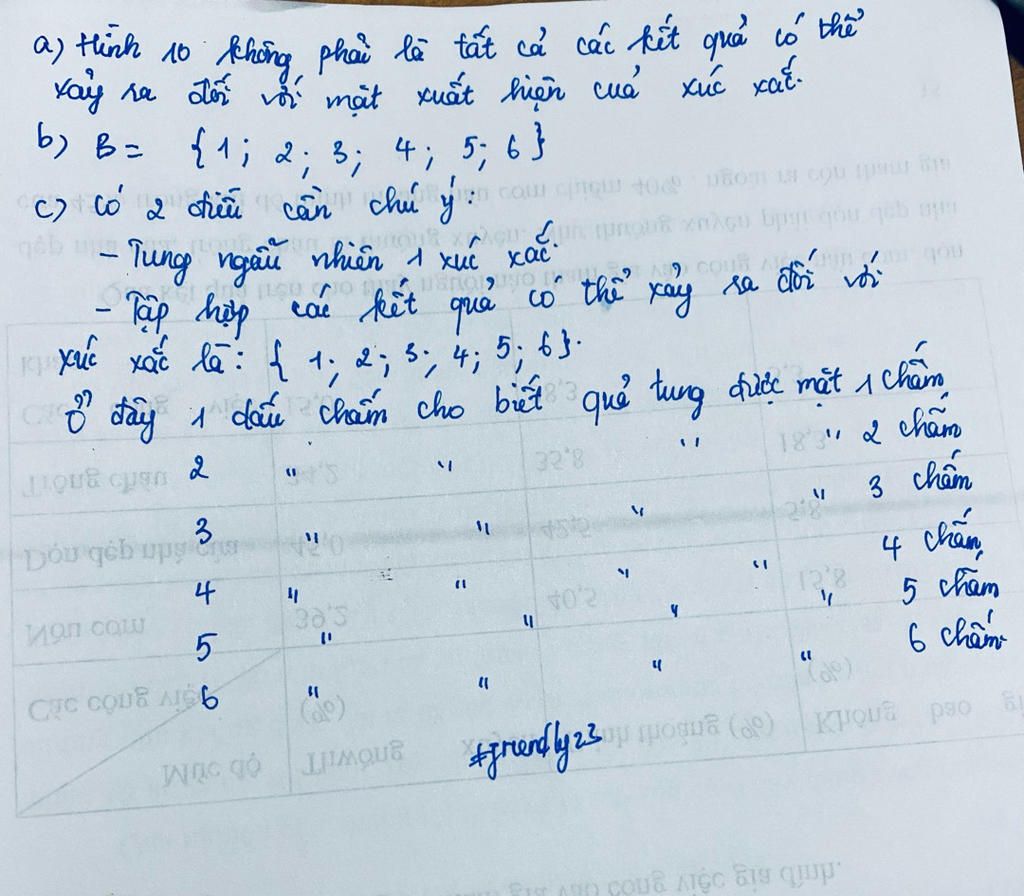 a) Hình 10 không phải là tất cả các kết quả có thể
xảy ra đối với mặt xuất hiện của xúc xắc.
b) B = { 1; 2; 3; 4; 5; 6 }
c) Có 2 điều cần chú ý:
- Tung ngẫu nhiên 1 xúc xắc.
- Tập hợp các kết quả có thể xảy ra đối với
xúc xắc là: { 1; 2; 3; 4; 5; 6 }.
Ở đây 1 dấu chấm cho biết quả tung được mặt 1 chấm
2 " " " " 2 chấm
3 " " " " 3 chấm
4 " " " " 4 chấm
5 " " " " 5 chấm
6 " " " " 6 chấm.
#friendly23